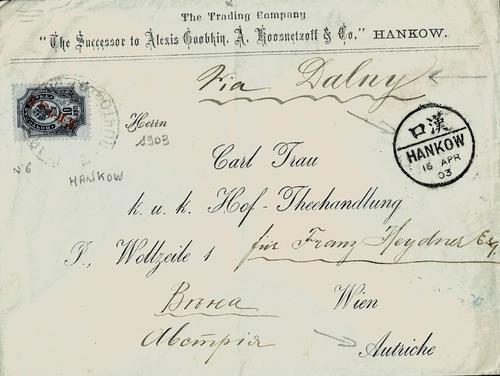 The Trading Company
"The Successor to Alexis Goobkin, A. Koosnetzoff & Co." HANKOW.
Via Dalny
Herrn
1903
口漢
HANKOW
16 APR
03
Nº6
HANKOW
Carl Trau
k. u. k. Hof-Theehandlung
I., Wollzeile 1
für Franz Heydner Esq.
Вѣна
Wien
Австрія
Autriche